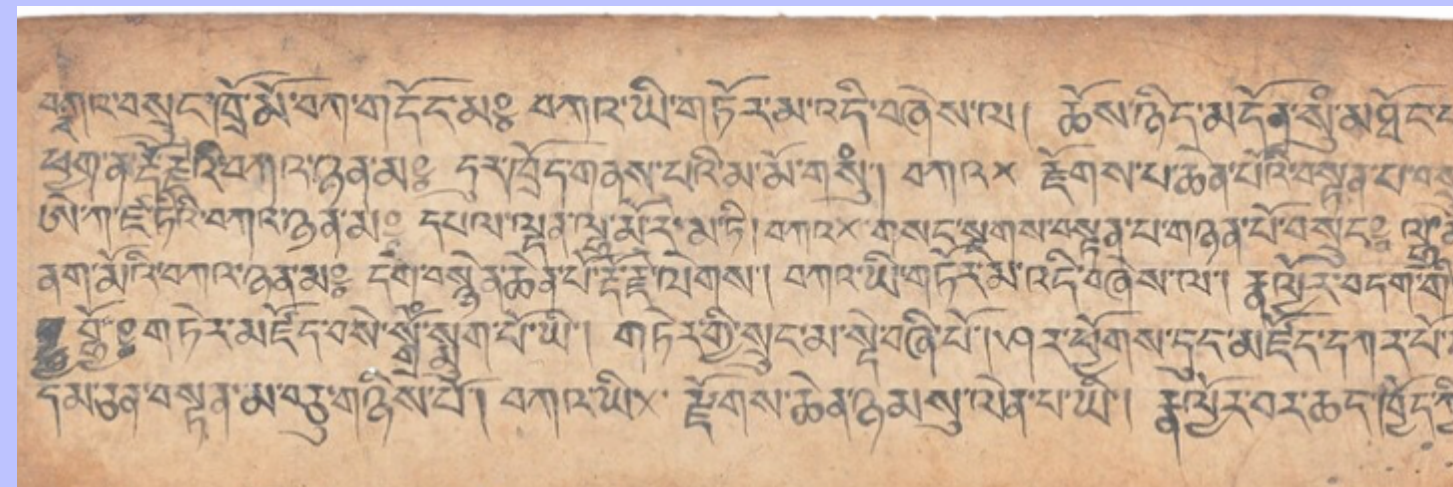 བཀའ་བསྲུང་ཁྲོ་མོ་བཀ་ག་དོད་མ༔ བཀའ་ཡི་གཏོར་མ་འདི་བཞེས་ལ། ཆོས་ཉིད་མ་དོན་སྲུཾ་མ་ཐོང་
ཕྱག་ན་རྡོ་རྗེའི་བཀའ་ཉན་མ༔ དུར་ཁྲོད་གནས་པའི་མ་མོ་གསུཾ། བཀའ་× རྫོགས་པ་ཆེན་པོའི་བསྟན་པ་
ཨེ་ཀ་ཛ་ཏིའི་བཀའ་ཉན་མ༔ དཔལ་ལྡན་ལྷ་མོ་རེ་མ་ཏི། བཀའ་× གསང་སྔགས་བསྟན་པ་གཉན་པོ་བསྲུང༔
ནག་མོའི་བཀའ་ཉན་མ༔ དགེ་བསྙེན་ཆེན་པོ་རྡོ་རྗེ་ལེགས། བཀའ་ཡི་གཏོར་མ་འདི་བཞེས་ལ། རྣལ་འབྱོར་བདག་གི
གཏེར་མཛོད་བསེ་སྒྲོཾ་སྨུག་པོ་ཡི། གཏེར་གྱི་སྲུང་མ་སྡེ་བཞི་པོ། ཤར་ཕྱོགས་དུད་མཛོད་དཀར་པོ་
དམ་ཅན་བསྟན་མ་བཅུ་གཉིས་པོ། བཀའ་ཡི་× རྫོགས་ཆེན་ཉམས་ལེན་པ་ཡི། རྣལ་འབྱོར་བར་ཆད་ཁྱོད་ཀྱི